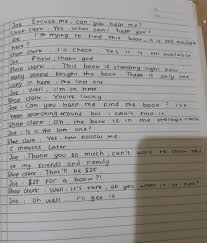 Joe : Excuse me, can you help me?
Shop Clerk : Yes what can I help you?
Joe : I'm trying to find this book, is it still available
here?
Shop Clerk : I'll check. Yes it is still available
Joe : Phew, thank god
Shop Clerk : This book is trending right now
many people bought this book. There is only one
in here, the last one
Joe : Well, I'm in time
Shop Clerk : You're lucky
Joe : Can you help me find the book? I've
been searching around but I can't find it.
Shop Clerk : Oh, the book is in the storage room
Joe : Is it the last one?
Shop Clerk : Yes, now follow me.
5 minutes later
Joe : Thank you so much, can't wait to show this
to my friends and family
Shop Clerk : That'll be $25
Joe : $25 for a book?!
Shop Clerk : Well, it's rare, do you want it or not?
Joe : Oh well, I'll get it